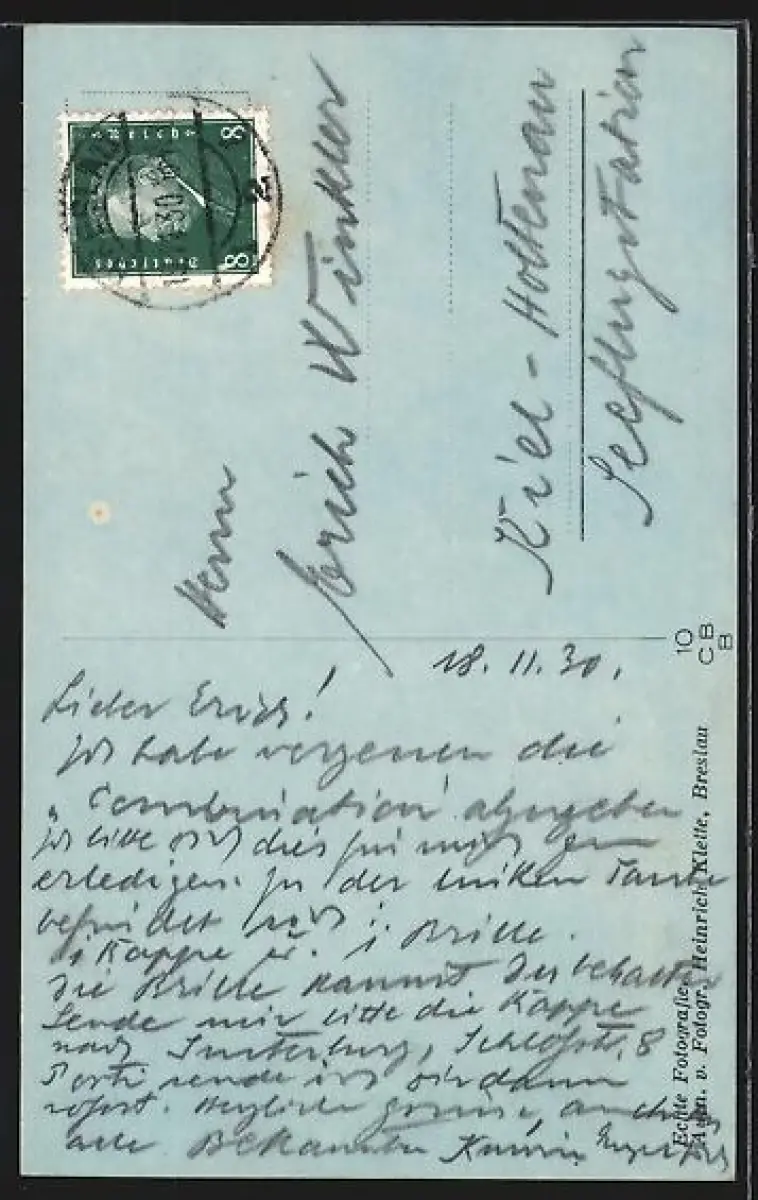 Deutsches
8
8
30
2
Herrn
Erich Winkler
Kiel-Holtenau
Seeflugstation
10
C B
B
18. 11. 30.
Lieber Erich!
Ich habe vergessen die
„Combination" abzugeben
Ich bitte dich dies für mich zu
erledigen. In der linken Tasche
befindet sich 1
1 Kappe u. 1 Brille.
Die Brille kannst Du behalten
Sende mir bitte die Kappe
nach Insterburg, Schloßstr. 8
Porto sende ich dir dann
sofort. Herzliche Grüsse an
alle Bekannten
Echte Fotografie
Aufn. v. Fotogr. Heinrich Klette, Breslau